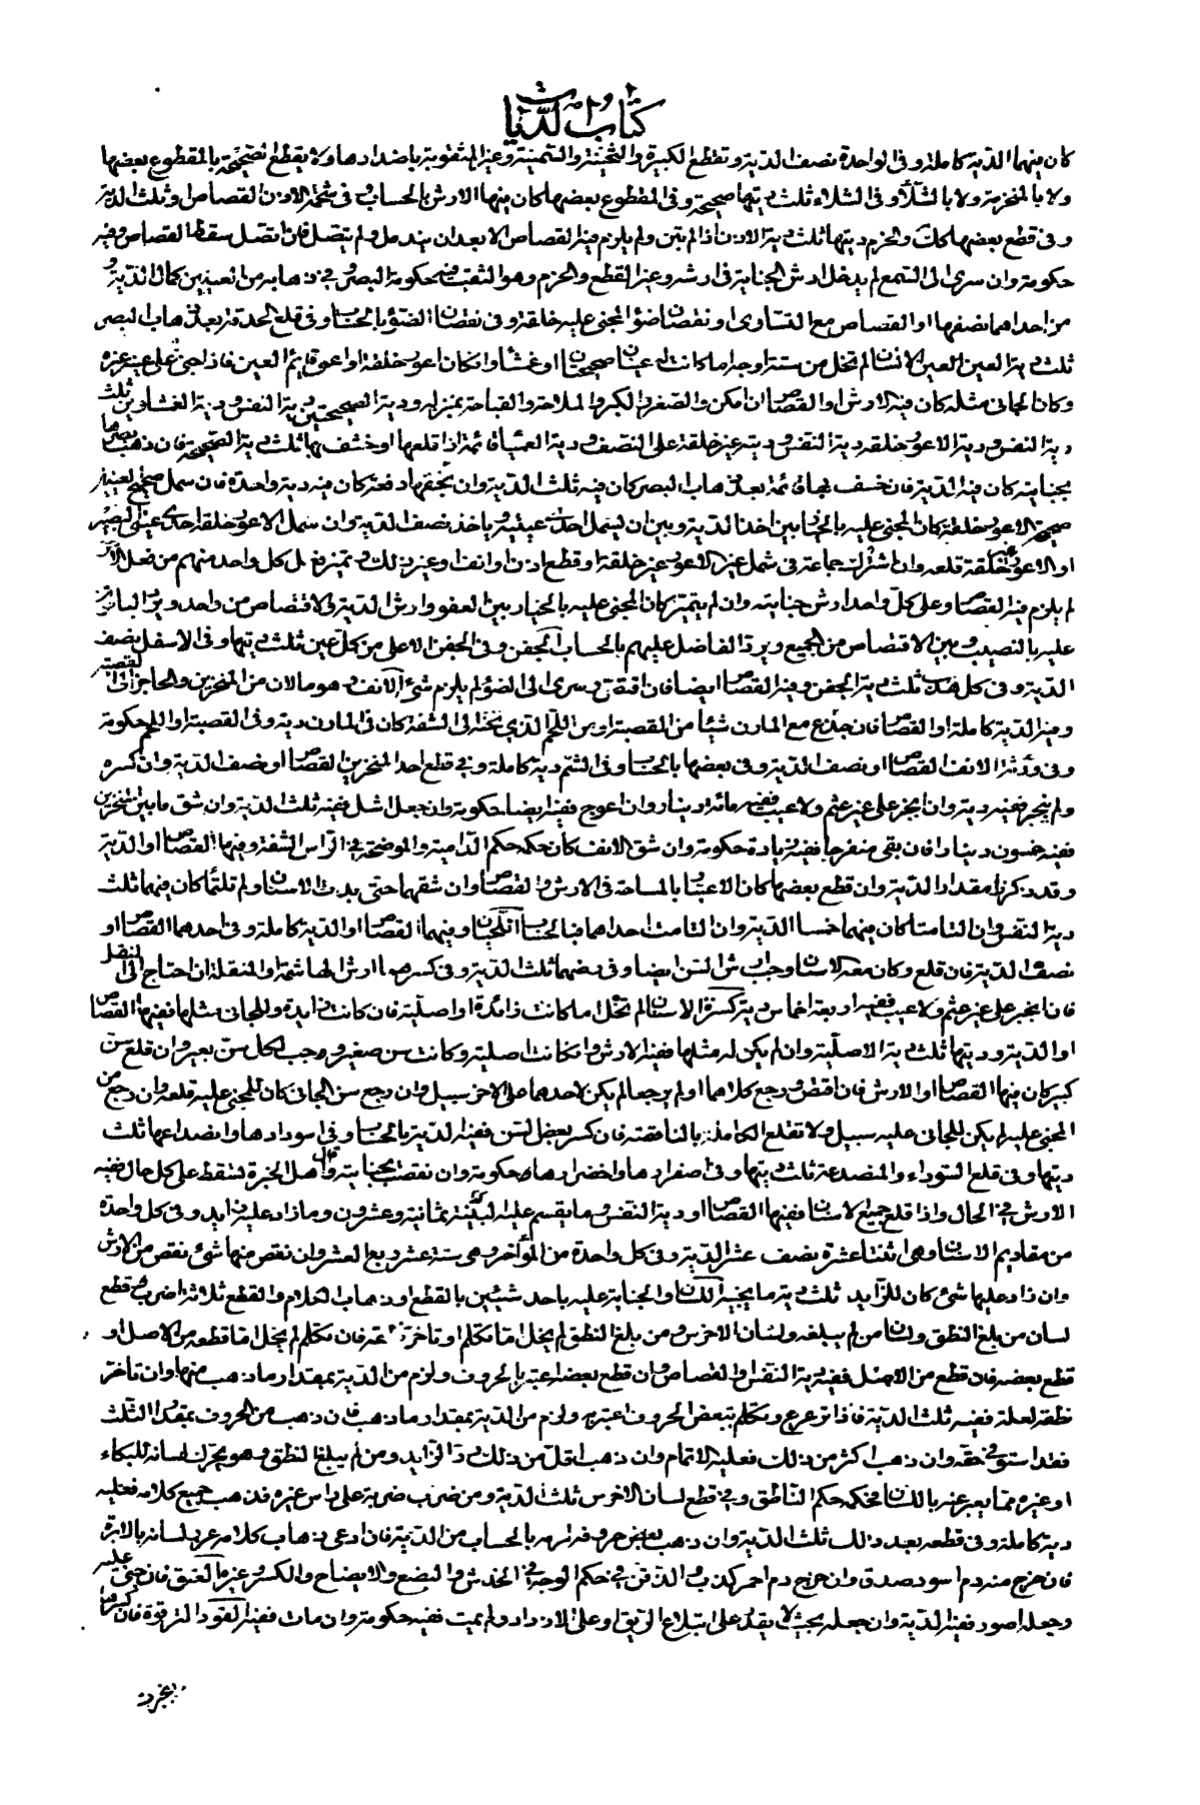 كتاب الديات
كان فيهما الدية كاملة وفى الواحدة نصف الدية وتقطع الكبيرة والثخينة والسمينة وغير المثقوبة باضدادها ولا يقطع الصحيحة بالمقطوع بعضها
ولا بالمنخرمة ولا بالشلاء وفى الشلاء ثلث ديتها صحيحة وفى المقطوع بعضها كان فيها الارش بالحساب وفى شحمة الاذن القصاص او ثلث الدية
وفى قطع بعضها كذلك والخرم ديتها ثلث دية الاذن اذا لم يبن ولم يلزم فيه القصاص الا بعد ان يندمل ولم يتصل فان اتصل سقط القصاص وفيه
حكومة وان سرى الى السمع لم يدخل ارش الجناية فى ارشه وغير القطع والخرم وهو الثقب فيه حكومة البصر فى ذهابه من العينين كمال الدية و
من احداهما نصفها او القصاص مع التساوى او نقصان ضوء المجنى عليه خلقة وفى نقصان الضوء بالحساب وفى قلع الحدقة بعد ذهاب البصر
ثلث دية العين العين الانسان لم تخل من ستة اوجه اما كانت عينا صحيحتان او غشاء او كان اعور خلقة او اعور قايم العين فاذا جنى على غيره
وكان الجانى مثله كان فيه الارش او القصاص ان امكن والصغر والكبر والملاحة والقباحة بمنزلة ودية الصحيحتين دية النفس ودية الغشاوين ثلث
دية النفس ودية الاعور خلقة دية النفس ودية غير خلقة على النصف ودية العمياء قائمة اذا قلعها او خسف بها ثلث دية الصحيحة فان ذهب بصرها
بجنايته كان فيه الدية فان خسف بها قائمة بعد ذهاب البصر كان فيه ثلث الدية وان خسفها دفعة كان فيه دية واحدة فان سمل صحيح العينين
صحيحة الاعور خلقة كان المجنى عليه بالخيار بين اخذ الدية وبين ان يسمل احدى عينيه وياخذ نصف الدية وان سمل الاعور خلقة احدى عينى البصير
او الاعور خلقة قلعه وان اشترك جماعة فى سمل عين الاعور غير خلقة او قطع اذن او انف او غير ذلك وتميز فعل كل واحد منهم من فعل الآخر
لم يلزم فيه القصاص وعلى كل واحد ارش جنايته وان لم يتميز كان المجنى عليه بالخيار بين العفو وارش الدية والاقتصاص من واحد ويرد الباقون
عليه بالنصيب وبين الاقتصاص من الجميع ويرد الفاضل عليهم بالحساب الجفن وفى الجفن الاعلى من كل عين ثلث ديتها وفى الاسفل نصف
الدية وفى كل هدب ثلث دية الجفن وفيه القصاص ايضا فان اقتص وسرى الى الضوء لم يلزم شئ الانف وهو ما لان من المنخرين والحاجز الى القصبة
وفيه الدية كاملة او القصاص فان جذع مع المارن شيئا من القصبة او من اللحم الذى تحته الى الشفة كان فى المارن دية وفى القصبة او اللحم حكومة
وفى روثة الانف القصاص او نصف الدية وفى بعضها بالحساب وفى الشم دية كاملة وفى قطع احد المنخرين القصاص او نصف الدية وان كسره
ولم ينجبر ففيه دية وان انجبر على غير عثم ولا عيب ففيه مائة دينار وان اعوج ففيه ايضا حكومة وان جعل اشل ففيه ثلث الدية وان شق ما بين المنخرين
ففيه خمسون دينارا فان بقى منفرجا ففيه زيادة حكومة وان شق الانف كان حكمه حكم الدامية والموضحة فى الرأس الشفة وفيهما القصاص او الدية
وقد ذكرنا مقدار الدية وان قطع بعضها كان الاعتبار بالمساحة فى الارش والقصاص وان شقهما حتى بدت الاسنان ولم تلتئما كان فيهما ثلث
دية النفس وان التامتا كان فيهما خمسا الدية وان التامت احداهما فبالحساب اللحيان وفيهما القصاص او الدية كاملة وفى احدهما القصاص او
نصف الدية فان قلع وكان معه الاسنان وجب ارش السن ايضا وفى رضهما ثلث الدية وفى كسرهما ارش الهاشمة او المنقلة ان احتاج الى النقل
فان انجبر على غير عثم ولا عيب ففيه اربعة اخماس دية كسره الاسنان لم تخل اما كانت زائدة او اصلية فان كانت زايدة وللجانى مثلها ففيها القصاص
او الدية وديتها ثلث دية الاصلية وان لم يكن له مثلها ففيه الارش وان كانت اصلية وكانت سن صغير وجب لكل سن بعير وان قلع سن
كبير كان فيها القصاص او الارش فان اقتص ورجع كلاهما او لم يرجعا لم يكن لاحدهما على الاخر سبيل وان رجع سن الجانى كان للمجنى عليه قلعه وان رجع سن
المجنى عليه لم يكن للجانى عليه سبيل ولا تقلع الكاملة بالناقصة فان كسر بعض السن ففيه الدية بالحساب وفى اسودادها وانصداعها ثلث
ديتها وفى قلع السوداء والمنصدعة ثلث ديتها وفى اصفرارها واخضرارها حكومة وان نقصت بجنايته وقال اهل الخبرة تسقط على كل حال ففيه
الارش فى الحال واذا قلع جميع الاسنان ففيها القصاص او دية النفس وما يقسم عليه الدية ثمانية وعشرون وما زاد عليه زايد وفى كل واحدة
من مقاديم الاسنان وهى اثنتا عشرة نصف عشر الدية وفى كل واحدة من المؤآخر وهى ستة عشر ربع العشر وان نقص منها شئ نقص من الارش
وان زاد عليها شئ كان للزايد ثلث دية ما يجنبه اللسان والجناية عليه باحد شيئين بالقطع او ذهاب الكلام والقطع ثلاثة اضرب قطع
لسان من بلغ النطق ولسان من لم يبلغه ولسان الاخرس ومن بلغ النطق لم يخل اما تكلم او تاخر نطقه فان تكلم لم يخل اما قطعه من الاصل او
قطع بعضه فان قطع من الاصل ففيه دية النفس او القصاص وان قطع بعضه اعتبر بالحروف ولزم من الدية بمقدار ما ذهب منها وان تاخر
نطقه لعلة ففيه ثلث الدية فاذا ترعرع وتكلم ببعض الحروف اعتبر به ولزم من الدية بمقدار ما ذهب فان ذهب من الحروف بمقدار الثلث
فقد استوفى حقه وان ذهب اكثر من ذلك فعليه الاتمام وان ذهب اقل من ذلك رد الزايد ومن لم يبلغ النطق وهو يحرك لسانه للبكاء
او غيره مما يعبر عنه باللسان فحكمه حكم الناطق وفى قطع لسان الاخرس ثلث الدية ومن ضرب ضربة على راس غيره فذهب جميع كلامه فعليه
دية كاملة وفى قطعه بعد ذلك ثلث الدية وان ذهب بعض حروفه لزمه بالحساب من الدية فان ادعى ذهاب كلامه غرب لسانه بالابرة
فان خرج منه دم اسود صدق وان خرج دم احمر كذب الذقن فى حكم الوجه فى الخدش والبضع والايضاح والكسر وغيرها العنق فان جنى عليه
وجعله اصور ففيه الدية وان جعله بحيث لا يقدر على ابتلاع الريق او على الازدراد ولم يمت ففيه حكومة وان مات ففيه القود الترقوة فان كسرها